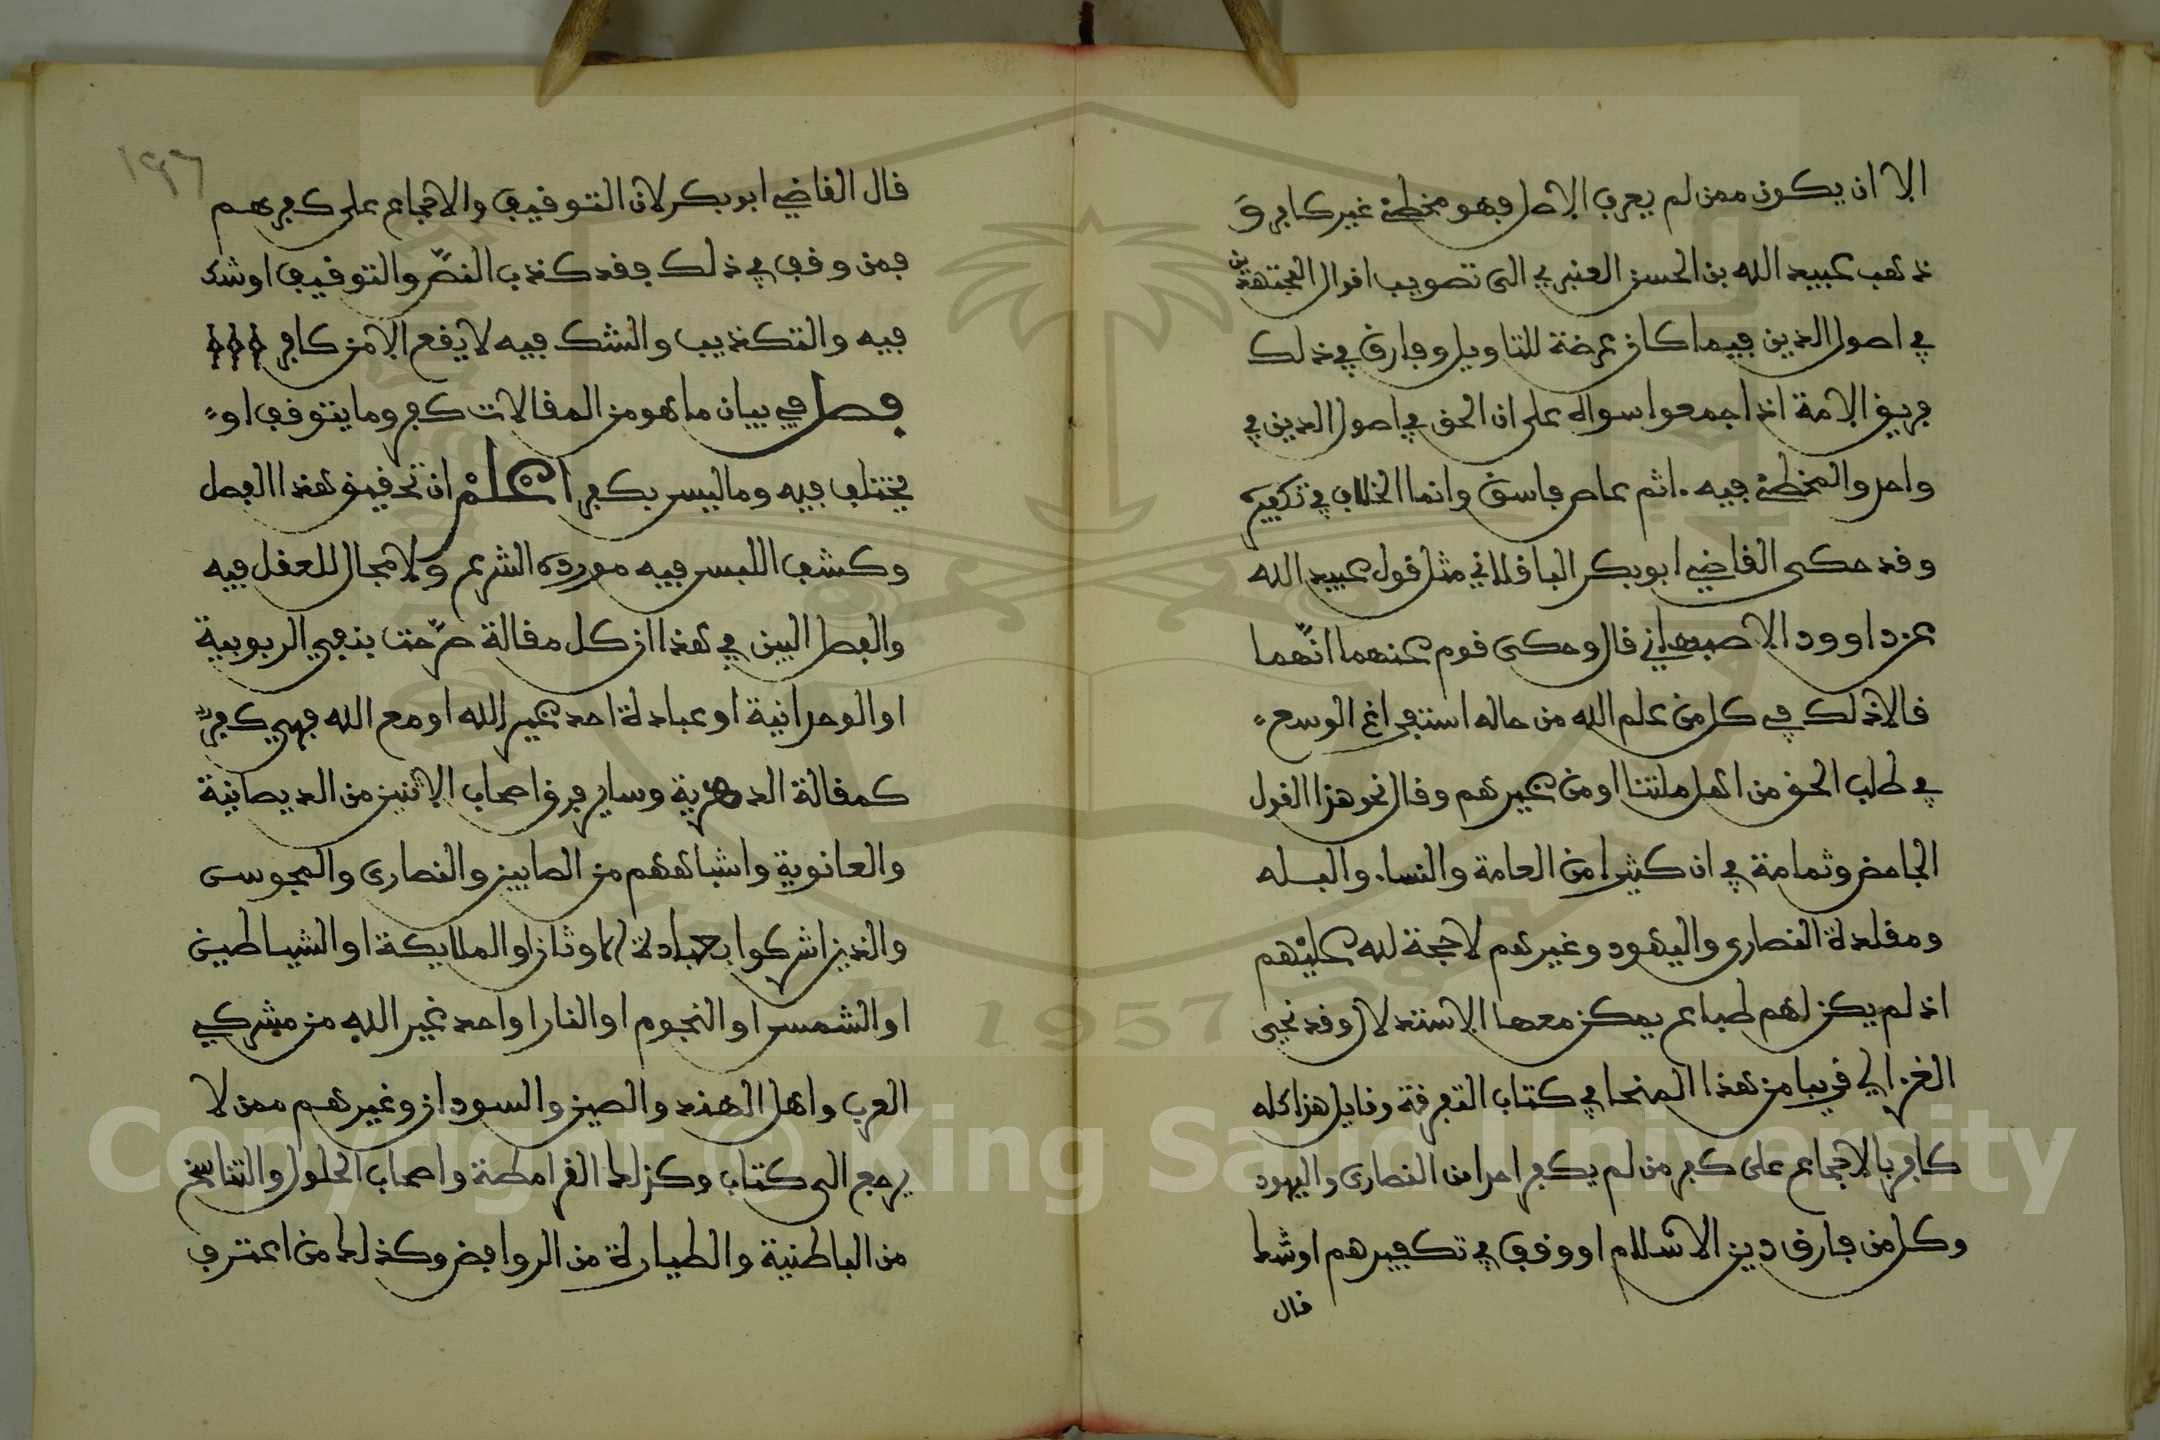 الا ان يكون ممن لم يعرف الاصل فهو مخطئ غير كافر و
ذهب عبيد الله بن الحسن العنبري الى تصويب اقوال المجتهدين
في اصول الدين فيما كان عرضة للتاويل وفارق في ذلك
فريق الامة اذ اجمعوا سواه على ان الحق في اصول الدين في
واحد والمخطئ فيه اثم عاص فاسق وانما الخلاف في تكفيره
وقد حكى القاضي ابوبكر الباقلاني مثل قول عبيد الله
عن داوود الاصبهاني قال وحكى قوم عنهما انّهما
قالا ذلك في كل من علم الله من حاله استفراغ الوسع
في طلب الحق من اهل ملتنا او من غيرهم وقال نحو هذا القول
الجاحظ وثمامة في ان كثيرا من العامة والنساء والبله
ومقلدة النصارى واليهود وغيرهم لا حجة لله عليهم
اذ لم يكن لهم طباع يمكن معها الاستدلال وقد نحى
الغزالي قريبا من هذا المنحا في كتاب التفرقة وقايل هذا كله
كافر بالاجماع على كفر من لم يكفر احدا من النصارى واليهود
وكل من فارق دين الاسلام او وقف في تكفيرهم او شك
قال
١٩٦
قال القاضي ابوبكر لان التوقيف والاجماع على كفرهم
فمن وقف في ذلك فقد كذب النصّ والتوقيف او شك
فيه والتكذيب والشك فيه لا يقع الا من كافر
فصل في بيان ما هو من المقالات كفر وما يتوقف او
يختلف فيه وما ليس بكفر اعلم ان تحقيق هذا الفصل
وكشف اللبس فيه مورده الشرع ولا مجال للعقل فيه
والفصل البين في هذا ان كل مقالة صرّحت بنفي الربوبية
او الوحدانية او عبادة احد غير الله او مع الله فهي كفر
كمقالة الدهرية وساير فرق اصحاب الاثنين من الديصانية
والمانوية واشباههم من الصابين والنصارى والمجوس
والذين اشركوا بعبادة الاوثان او الملايكة او الشياطين
او الشمس او النجوم او النار او احد غير الله من مشركي
العرب واهل الهند والصين والسودان وغيرهم ممن لا
يرجع الى كتاب وكذلك القرامطة واصحاب الحلول والتناسخ
من الباطنية والطيارة من الروافض وكذلك من اعترف
Copyright © King Saud University
1957